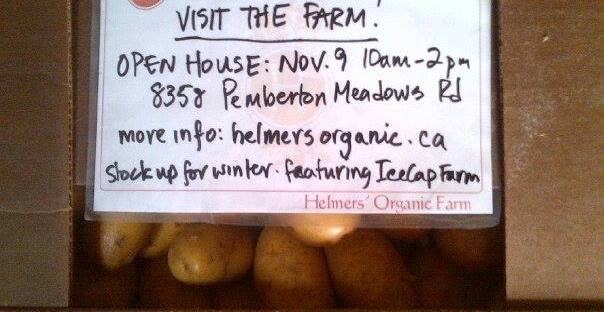 VISIT THE FARM!
OPEN HOUSE: NOV. 9 10am-2pm
8358 Pemberton Meadows Rd
more info: helmersorganic.ca
Stock up for winter. featuring IceCap Farm
Helmers' Organic Farm